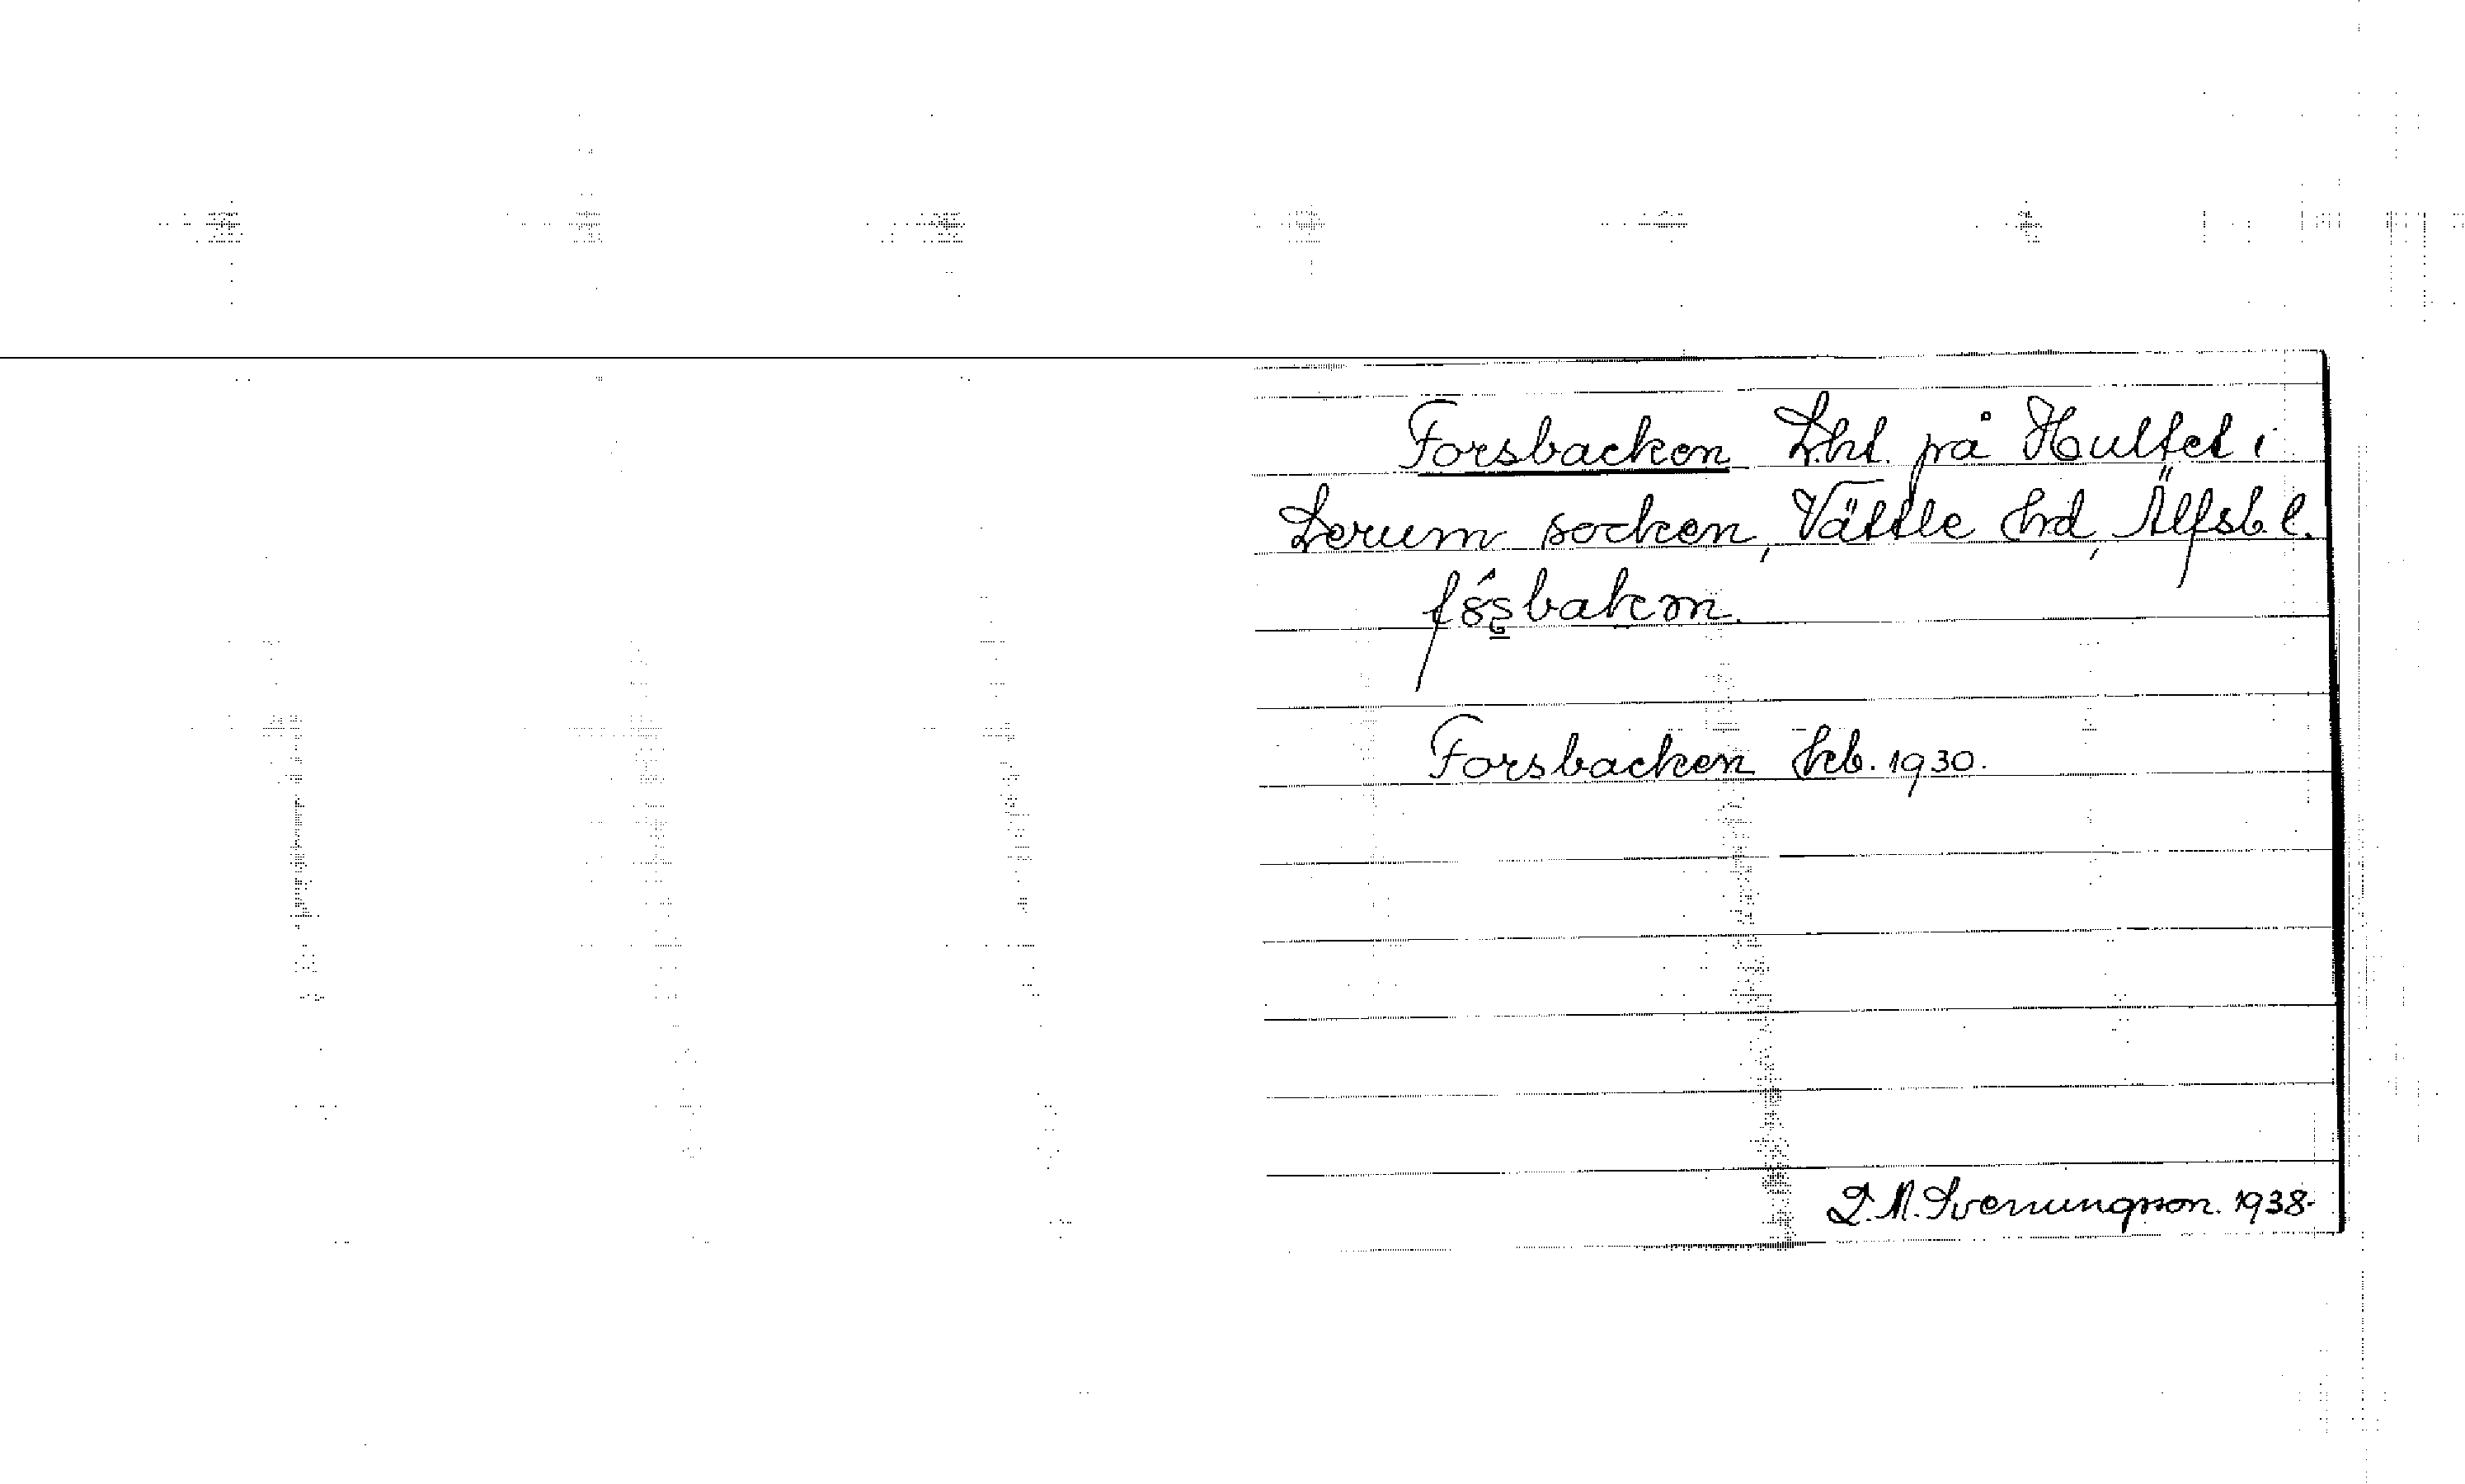 Forsbacken Lht. på Hultet i
Lerum socken, Vättle hrd, Älfsb. l.
Forsbacken hcb. 1930.
J. A. Svenungsson. 1938.